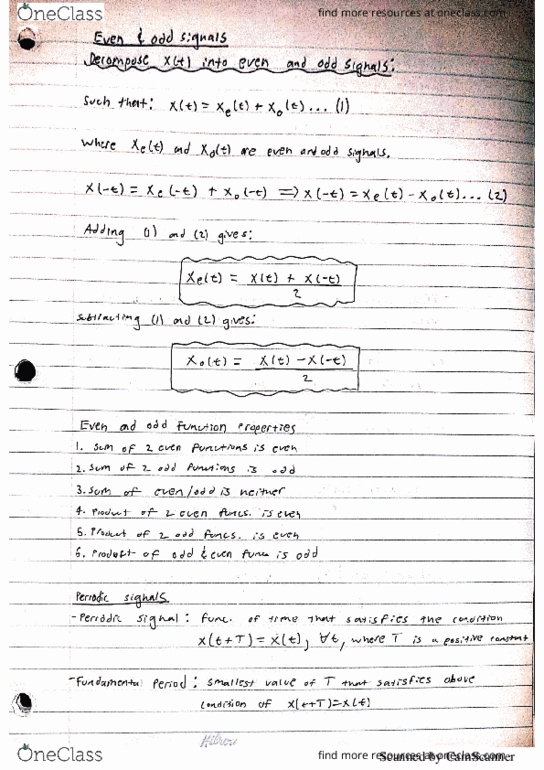 OneClass
find more resources at oneclass.com
Even & odd signals
Decompose x(t) into even and odd signals:
such that: x(t) = xe(t) + xo(t) ... (1)
where xe(t) and xo(t) are even and odd signals.
x(-t) = xe(-t) + xo(-t) ⇒ x(-t) = xe(t) - xo(t) ... (2)
Adding (1) and (2) gives:
xe(t) = x(t) + x(-t) / 2
subtracting (1) and (2) gives:
xo(t) = x(t) - x(-t) / 2
Even and odd function properties
1. sum of 2 even functions is even
2. sum of 2 odd functions is odd
3. sum of even/odd is neither
4. product of 2 even funcs. is even
5. product of 2 odd funcs. is even
6. product of odd & even func is odd
Periodic signals
- Periodic signal: func. of time that satisfies the condition
x(t+T) = x(t), ∀t, where T is a positive constant
- Fundamental Period: smallest value of T that satisfies above
condition of x(t+T)=x(t)
OneClass
find more resources at oneclass.com
Scanned by CamScanner